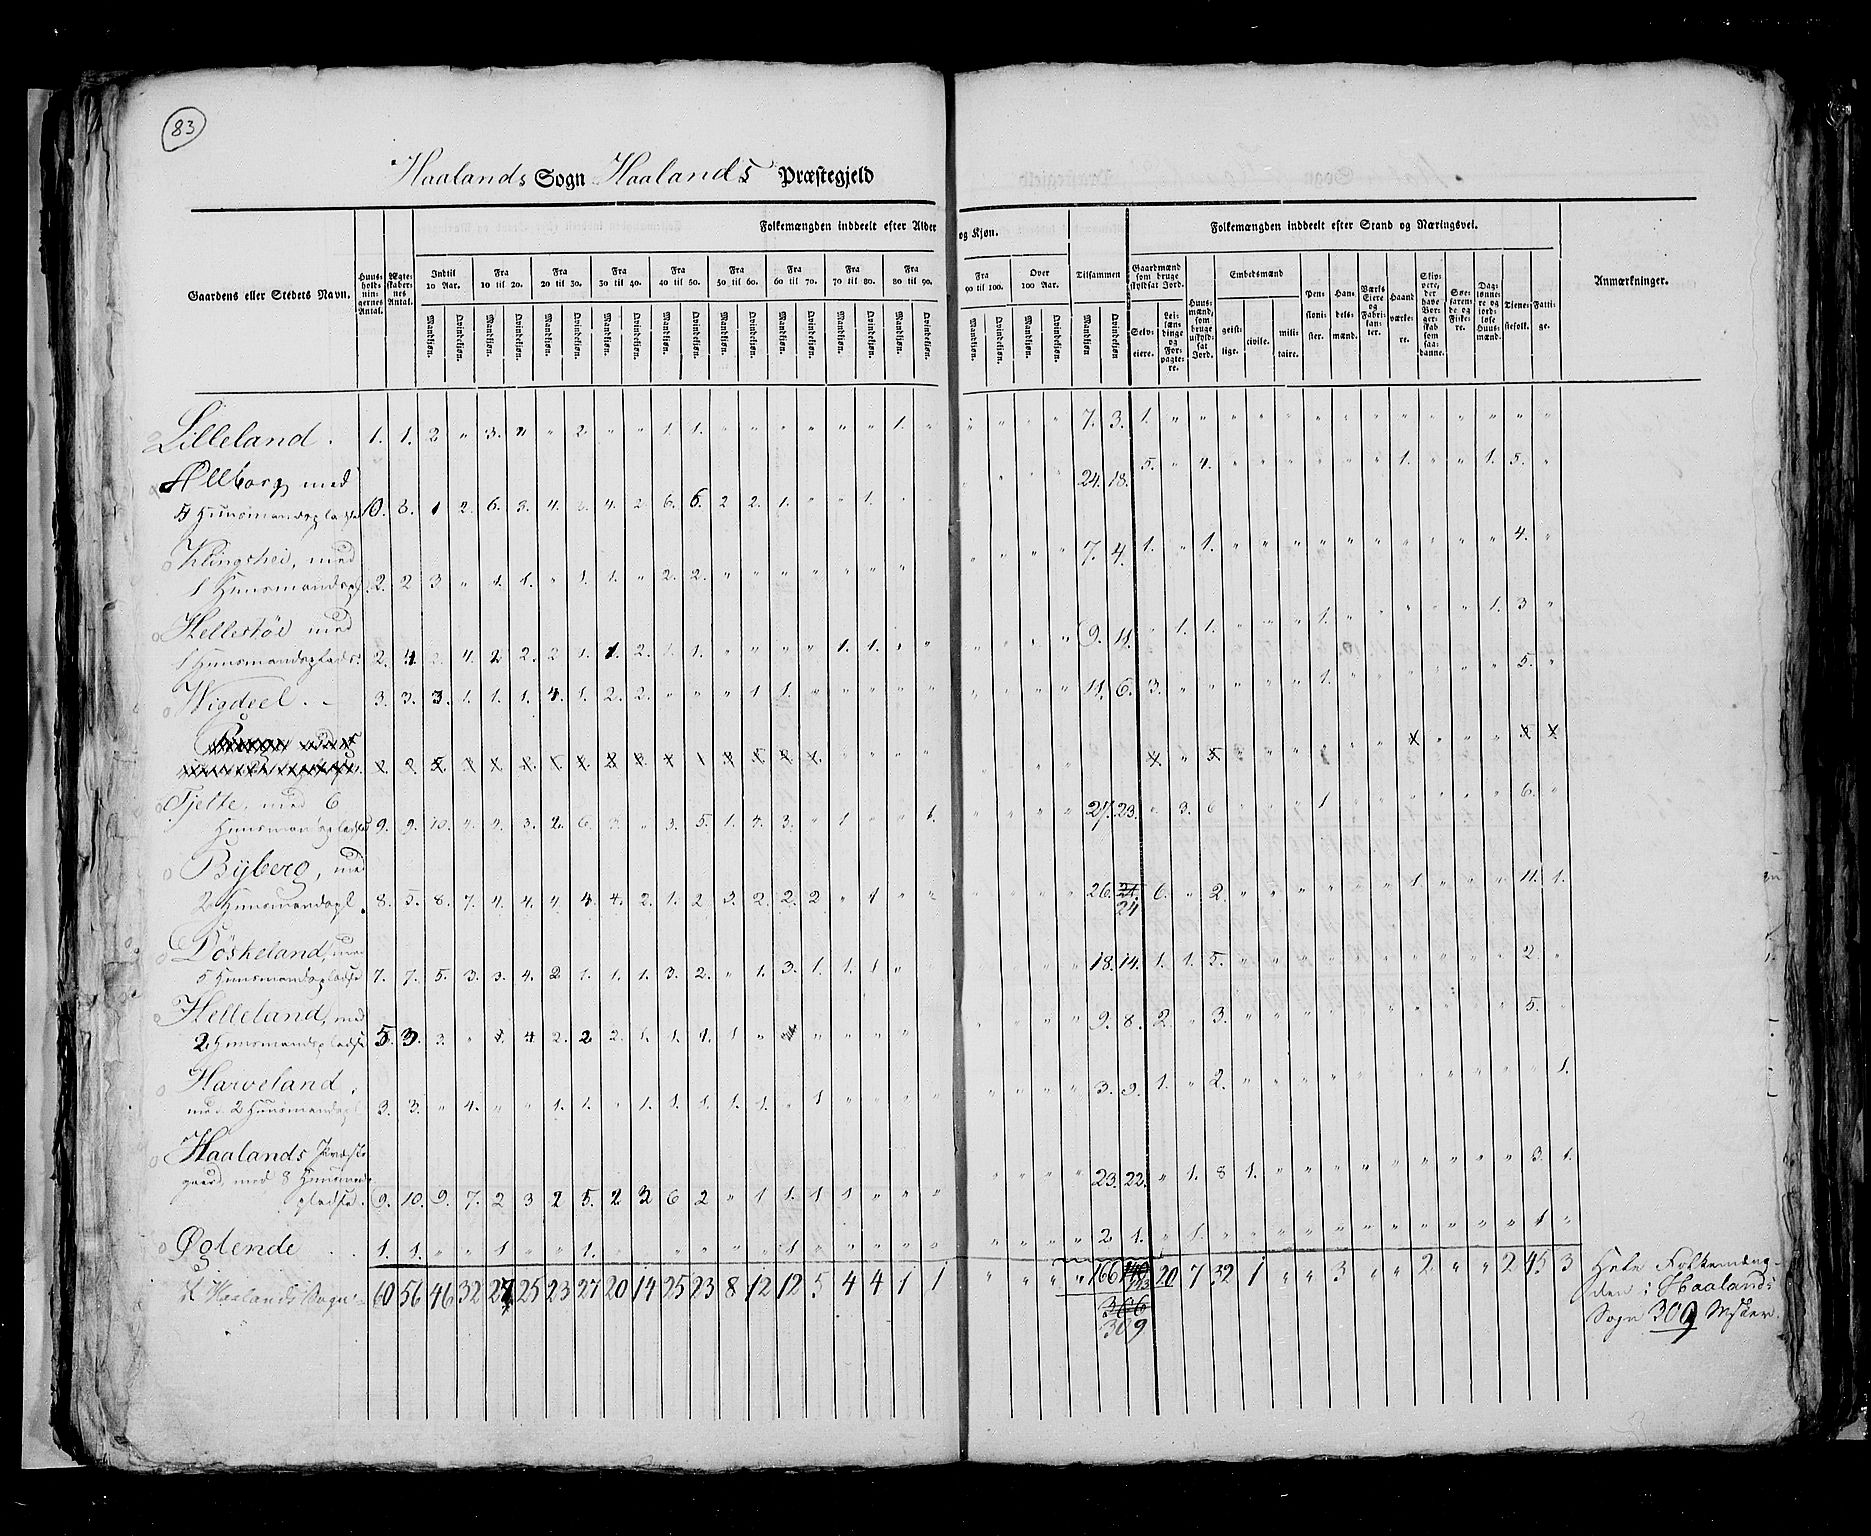 83
Haalands Sogn Haalands Præstegjeld
Gaardens eller Stedets Navn. Huusholdningernes Antal. Ægteskabernes Antal. Folkemængden inddeelt efter Alder og Kjøn. Tilsammen Folkemængden inddeelt efter Stand og Næringsvei. Anmærkninger.
Indtil 10 Aar. Fra 10 til 20. Fra 20 til 30. Fra 30 til 40. Fra 40 til 50. Fra 50 til 60. Fra 60 til 70. Fra 70 til 80. Fra 80 til 90. Fra 90 til 100. Over 100 Aar.
Mandkjøn. Qvindekjøn. Mandkjøn. Qvindekjøn. Mandkjøn. Qvindekjøn. Mandkjøn. Qvindekjøn. Mandkjøn. Qvindekjøn. Mandkjøn. Qvindekjøn. Mandkjøn. Qvindekjøn. Mandkjøn. Qvindekjøn. Mandkjøn. Qvindekjøn. Mandkjøn. Qvindekjøn. Mandkjøn. Qvindekjøn. Mandkjøn Qvindekjøn
Gaardmænd som bruge skyldsat Jord. Selveiere. Leilændinge og Forpagtere. Huusmænd, som bruge uskyldsat Jord. Embedsmænd geistlige. civile. militaire. Pensionister. Handelsmænd. Værks Eiere og Fabrikanter. Haandværkere. Skippere, der have Borgerskab som saadanne. Søefarende og Fiskere. Daglønnere og jordløse Huusmænd. Tienestefolk. Fattige.
Lilleland. 1. 1. 2 " 3. 2 " 2. " " 1. 1. " " " " " " 1. " " " " " 7. 3. 1. " " " " " " " " " " " " " "
Ølberg med 24. 18. 5. " 4. " " " " " " 1. " " 1. 5. "
4 Huusmandspladse 10. 8. 1 2. 6. 3. 4. 3. 4. 2. 6. 6. 2 2. 1. " " 1. " "
Klingshei, med 7. 4. 1. " 1. " " " " " " " " " " 4. "
1 Huusmandspl. 2. 2 3 " 1. 1. " 1. 1. " 2. 2. " " " " " " "
Hellestøe med 9. 11. " 1. 1. " " " 1. " " " " " 1. 3 "
1 Huusmandsplads. 2. 4 2. 4. 2 2. 2 1. 1. 2. 1. 1. " " " " 1. 1. " "
Wigdeel. 3. 3. 3. 1. 1. 1. 4. 1. 2. 2. " " " 1 1. " " " " " " " " " 11. 6. 3. " " " " " 1. " " " " " " 5. "
Tjelte. med 6 27. 23. " 3. 6 " " " 1 " " " " " " 6. "
Huusmandspladse 9. 9. 10. 4. 2. 3. 2. 6. 3. " 3. 5. 1. 4. 3. " 1 " " 1.
Byberg, med 26. 21. 6. " 2. " " " " " " 1 " " " 11. 1.
2 Huusmandspl. 8. 5. 8. 7. 4. 4. 4. 4. 4. 2. 1. 2 3. 2. 2. 2 " 1 " " 24
Døskeland, med 18. 14. 1. 1. 5. " " " " " " " " " " 2. "
5 Huusmandspladse 7. 7. 5. 3. 3. 4. 2 1. 1. 1. 3. 2. " 1. 3. 1. 1. 1 "
Helleland, med 9. 8. 2. " 3. " " " " " " " " " " 5. "
2 Huusmandspladse 5. 3. 3. " 1. 4. 2. 2 2. 1. 1. 1. 1 " " " " "
Harveland, 3. 9. 1. " 2. " " " " " " " " " " " 1.
med 2 Huusmandspl. 3. 3. " 4. " " 1. 1. " 1. 1. 1. 1. 1. " 1 " " " "
Haalands Præste 23. 22. " 1. 8 1. " " " " " " " " " 3. 1.
gaard, med 8 Huusmands
pladse. 9. 10. 9. 7. 2 3 2 5. 2 3 6 2 " 1 1. 1 1 " " "
Øglende 1. 1. " " 1 " " 1. " " " " " " 1 " " " " " " " " " 2 1. " 1. " " " " " " " " " " " 1 "
I Haalands Sogn 60 56 46 32 27 25 23 27 20 14 25 23 8 12 12 5 4 4 1 1 " " " " 166 140 20 7 32 1 " " 3 " " 2 " " 2 45 3
143
306
309
Hele Folkemæng-
den i Haalands
Sogn 309 Msker.